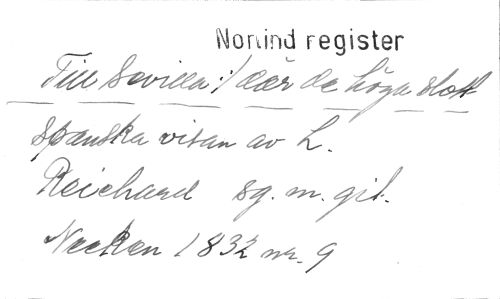 Norlind register
Till Sevilla :/ där de höga slott
spanska visan av L.
Reichard sg. m. git.
Necken 1832 nr. 9